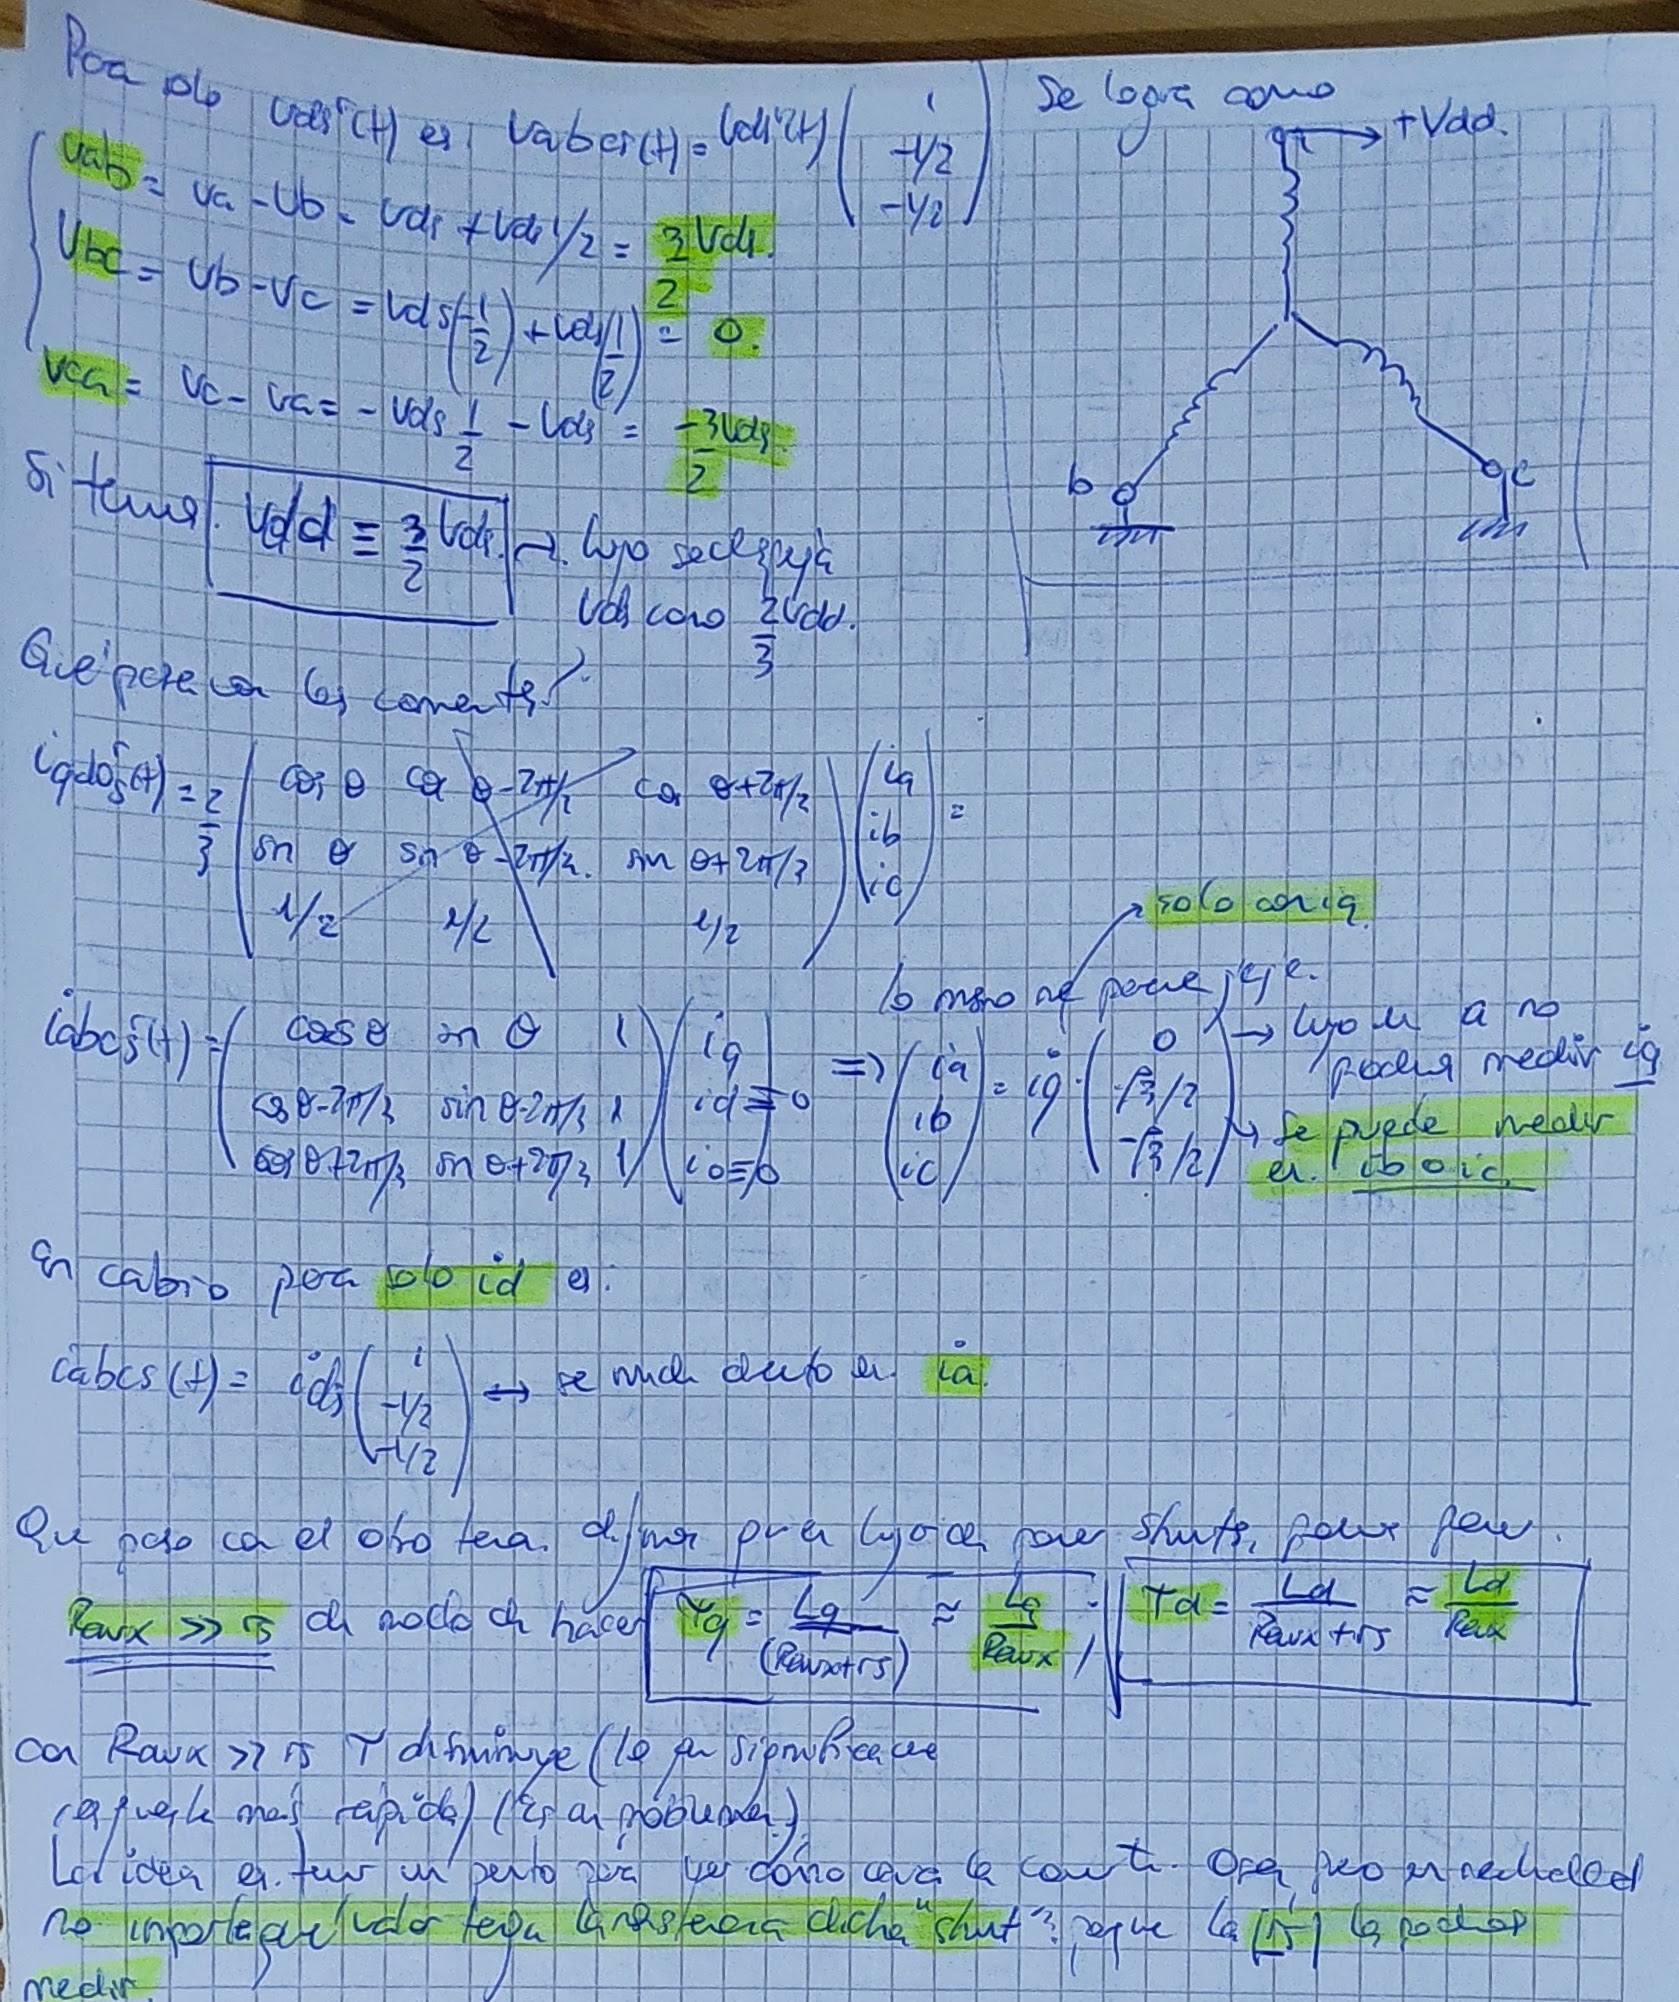 Para solo Vds^r(t) es: Vabcs(t) = Vds^r(t) (1 -1/2 -1/2)
Se logra como
+Vdd.
Vab = Va - Vb = Vds + Vds 1/2 = 3/2 Vds.
Vbc = Vb - Vc = Vds(-1/2) + Vds(1/2) = 0.
Vca = Vc - Va = -Vds 1/2 - Vds = -3Vds/2
b
c
Si Vdd ≡ 3/2 Vds. → luego
Vds como 2/3 Vdd.
Qué pasa con las corrientes?
iqd0s^r(t) = 2/3 (cos θ cos θ-2π/3 cos θ+2π/3
sin θ sin θ-2π/3 sin θ+2π/3
1/2 1/2 1/2) (ia ib ic) =
solo con iq.
lo mismo
iabcs(t) = (cos θ sin θ 1
cos θ-2π/3 sin θ-2π/3 1
cos θ+2π/3 sin θ+2π/3 1) (iq id≡0 i0≡0) => (ia ib ic) = iq · (0 √3/2 -√3/2)
→ luego en a no
podré medir iq
→ Se puede medir
en ib o ic.
En cabio para solo id es:
iabcs(t) = ids (1 -1/2 -1/2) ↔ se mide directo en ia.
Que paso con el otro tema.
Raux >> rs de modo de hacer Tq = Lq/(Raux+rs) ≈ Lq/Raux ; Td = Ld/(Raux+rs) ≈ Ld/Raux
con Raux >> rs T disminuye (lo que significa
respuesta más rápida) (Es un problema)
La idea es tener un punto para ver cómo crece la corriente. Osea pero en realidad
no importa qué valor tenga la resistencia dicha "shut"? porque la (rs) la podremos
medir.